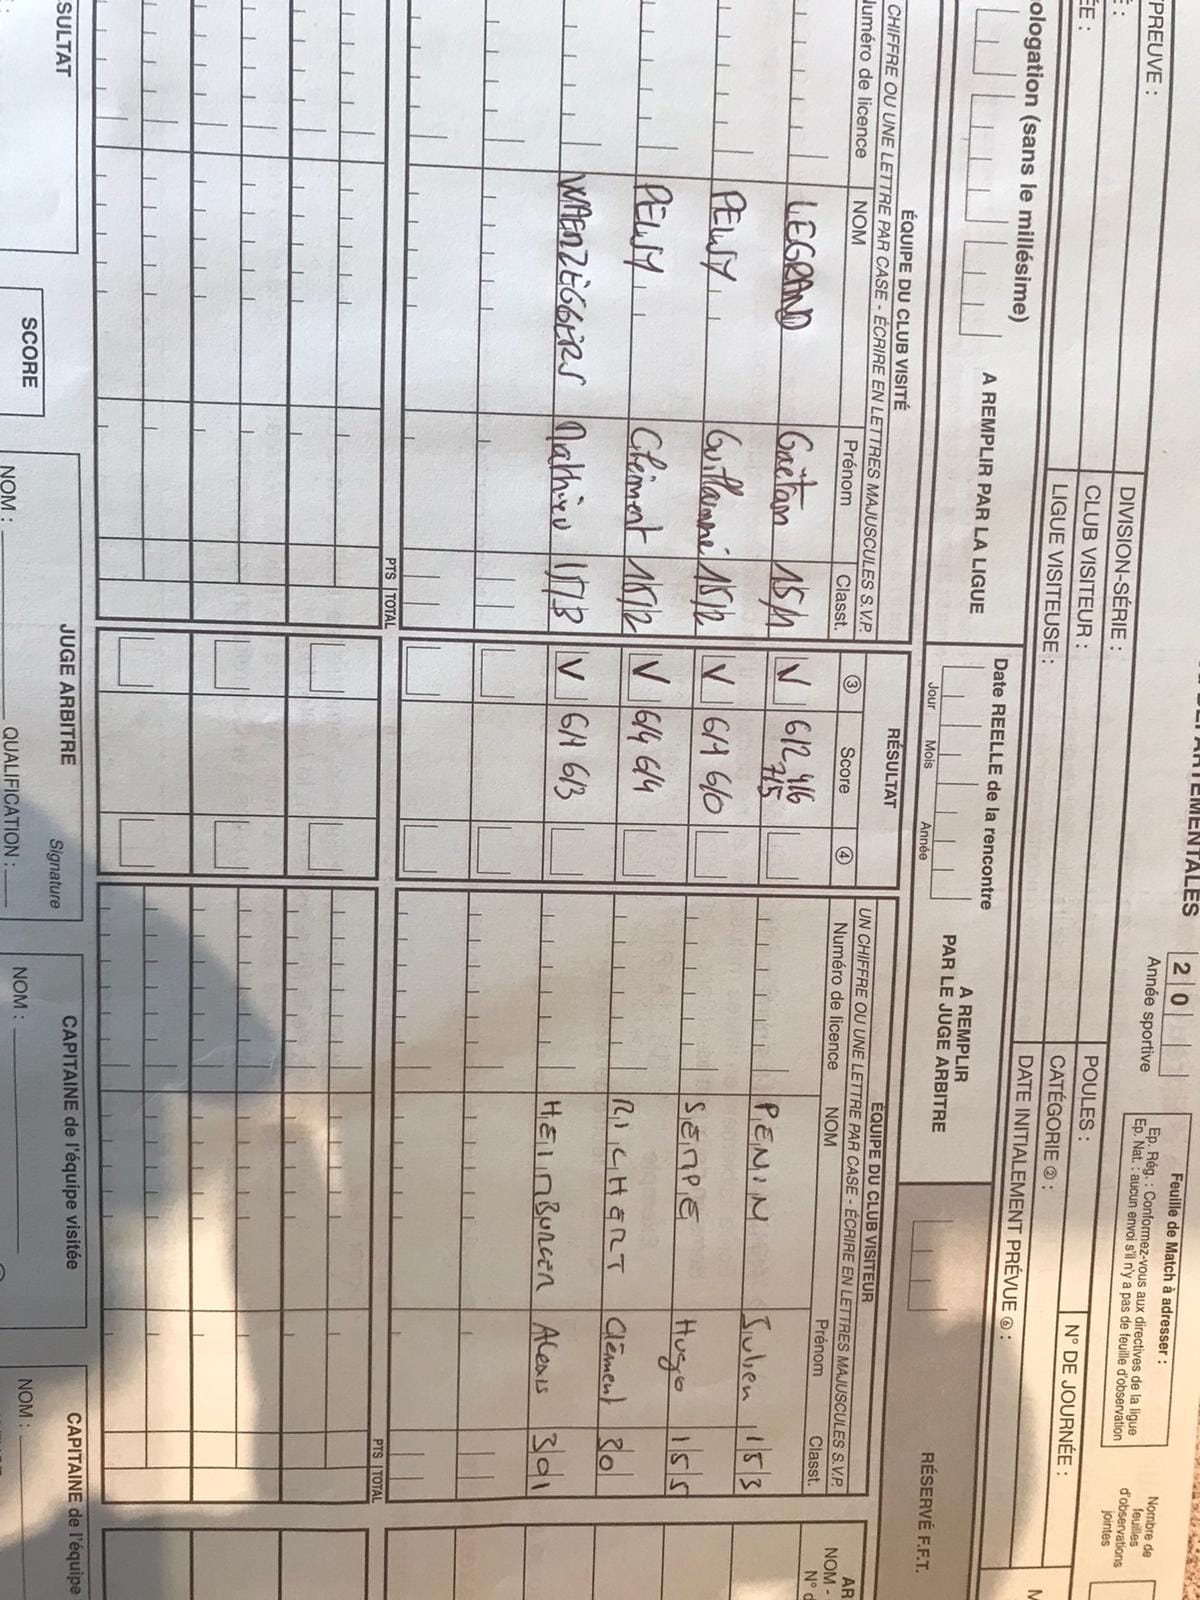 ÉPARTEMENTALES
2 0
Année sportive
Feuille de Match à adresser :
Ep. Rég. : Conformez-vous aux directives de la ligue
Ep. Nat. : aucun envoi s'il n'y a pas de feuille d'observation
Nombre de feuilles d'observations jointes
PREUVE :
DIVISION-SÉRIE :
CLUB VISITEUR :
POULES :
N° DE JOURNÉE :
ÉE :
LIGUE VISITEUSE :
CATÉGORIE ② :
DATE INITIALEMENT PRÉVUE ⑥ :
ologation (sans le millésime)
A REMPLIR PAR LA LIGUE
Date REELLE de la rencontre
Jour Mois Année
A REMPLIR
PAR LE JUGE ARBITRE
RÉSERVÉ F.F.T.
ÉQUIPE DU CLUB VISITÉ
CHIFFRE OU UNE LETTRE PAR CASE - ÉCRIRE EN LETTRES MAJUSCULES S.V.P.
Numéro de licence NOM Prénom Classt.
RÉSULTAT
③ Score ④
ÉQUIPE DU CLUB VISITEUR
UN CHIFFRE OU UNE LETTRE PAR CASE - ÉCRIRE EN LETTRES MAJUSCULES S.V.P.
Numéro de licence NOM Prénom Classt.
LEGRAND Gaëtan 15/1 V 6/2 4/6 7/5 PENIN Julien 15 3
PELISY Guillaume 15/2 V 6/1 6/0 SEMPE Hugo 15 5
PELISY Clément 15/2 V 6/4 6/4 RICHERT Clément 30
WAENZEGGERS Mathieu 15/3 V 6/1 6/3 HEIMBURGER Alexis 30 1
PTS TOTAL
PTS TOTAL
SULTAT
SCORE
JUGE ARBITRE
Signature
NOM :
QUALIFICATION :
CAPITAINE de l'équipe visitée
NOM :
CAPITAINE de l'équipe
NOM :